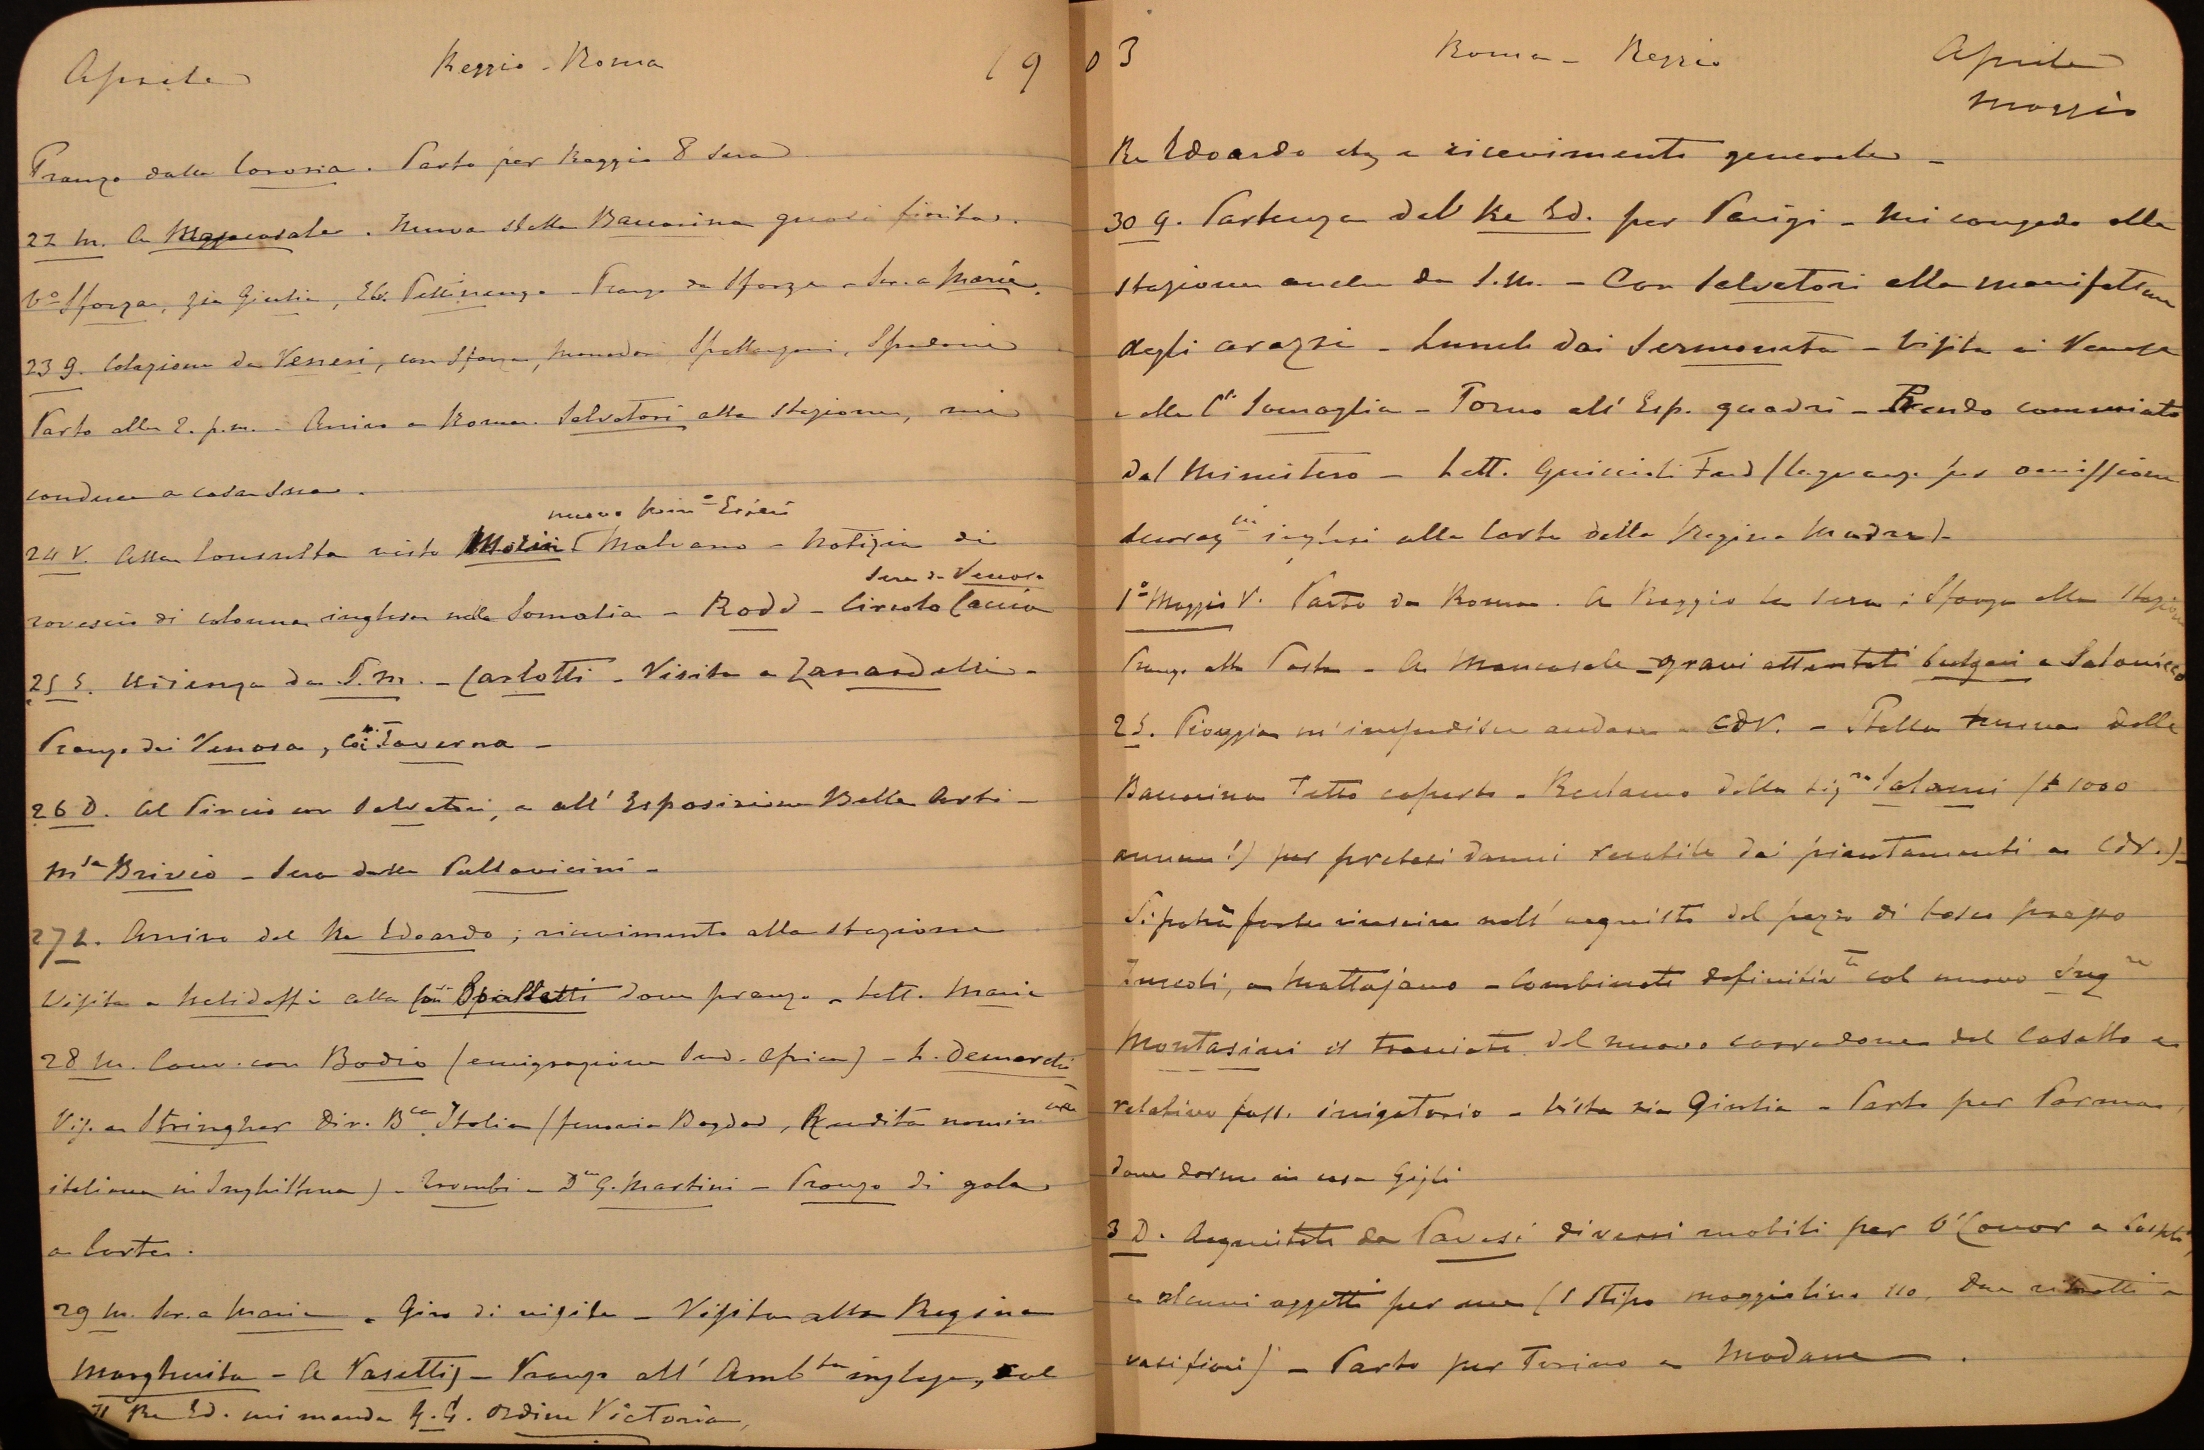 Aprile Reggio - Roma 19
Pranzo dalla Corosia. Parto per Reggio 8 sera
22 M. A Mazzacasale. Nuova stalla Baccarina quasi finita.
Co Sforza, zia Giulia, Pranzo da Sforza - Scr. a Maria.
23 G. Colazione da Venieri, con Sforza, Spallanzani,
Parto alle 2. p.m. - Arrivo a Roma. Salvatori alla stazione, mi
conduce a casa sua.
nuovo
24 V. Alla Consulta visto Morin e Malvano - Notizia di
Sera da Venosa
rovescio di colonna inglese nella Somalia - Rodd - Circolo Caccia
25 S. Udienza da S.M. - Carlotti - Visita a Zanardelli -
Pranzo dai Venosa, Taverna -
26 D. Al Pincio con Salvatori, e all' Esposizione Belle Arti -
Msa Brivio - Sera dalla Pallavicini -
27 L. Arrivo del Re Edoardo; ricevimento alla stazione
Visita a Nelidoff e alla Spalletti dove pranzo - Lett. Maria
28 M. Conv. con Bodio (emigrazione Sud. Africa) - L. Demarchi
Vis. a Stringher Dir. Bca Italia (ferrovia Bagdad, Rendita
italiana in Inghilterra) - Trombi - Dre G. Martini - Pranzo di gala
a Corte.
29 M. Scr. a Maria - Giro di visite - Visita alla Regina
Margherita - A Vasettij - Pranzo all' Ambta inglese, col
Il Re Ed. mi manda G. C. ordine Victoria,
03 Roma - Reggio Aprile
Maggio
Re Edoardo e ricevimento generale -
30 G. Partenza del Re Ed. per Parigi - Mi congedo alla
stazione anche da S.M. - Con Salvatori alla manifattura
degli arazzi - Lunch dai Sermoneta - Visita ai Venosa
e alla Css Somaglia - Torno all' Esp. quadri - Prendo commiato
dal Ministero - Lett. Guiccioli (lagnanze per omissione
decorazni inglesi alla Corte della Regina Madre) -
1o Maggio V. Parto da Roma. A Reggio la sera; Sforza alla stazione
Pranzo alla Posta - A Mancasale - gravi attentati bulgari a Salonicco
2 S. Pioggia m'impedisce andare a CdV. - Stalla nuova della
Baccarina Tetto coperto - Reclamo della Sigra Salami (£ 1000
annue!) per pretesi danni recatile dai piantamenti a CdV.) -
Si potrà forse riuscire nell' acquisto del pezzo di bosco presso
a Mattajano - Combinato definitivte col nuovo Ingre
Montasini il tracciato del nuovo corradone dal Casello e
relativo foss. irrigatorio - Vista zia Giulia - Parto per Parma,
dove dormo in casa Gigli
3 D. Acquistati da Pavesi diversi mobili per O'Conor a Costpli,
e alcuni oggetti per me (1 stipo maggiolino 110, due ritratti e
vasi fiori) - Parto per Torino e Modane.